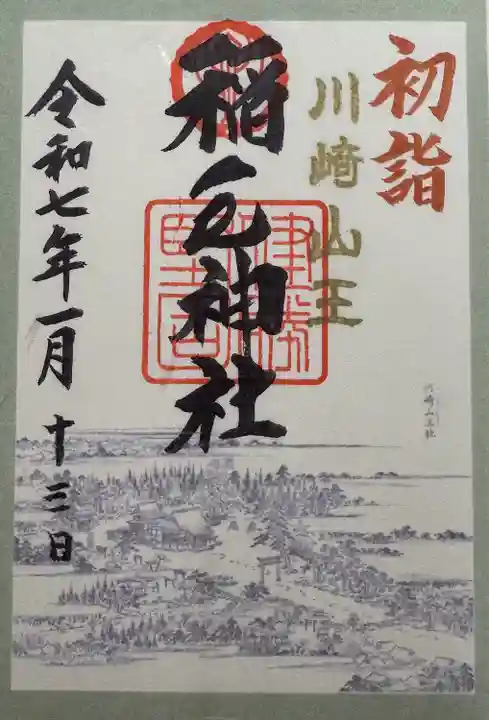 初詣
川崎山王
稲毛神社
令和七年一月十三日
川崎山王社